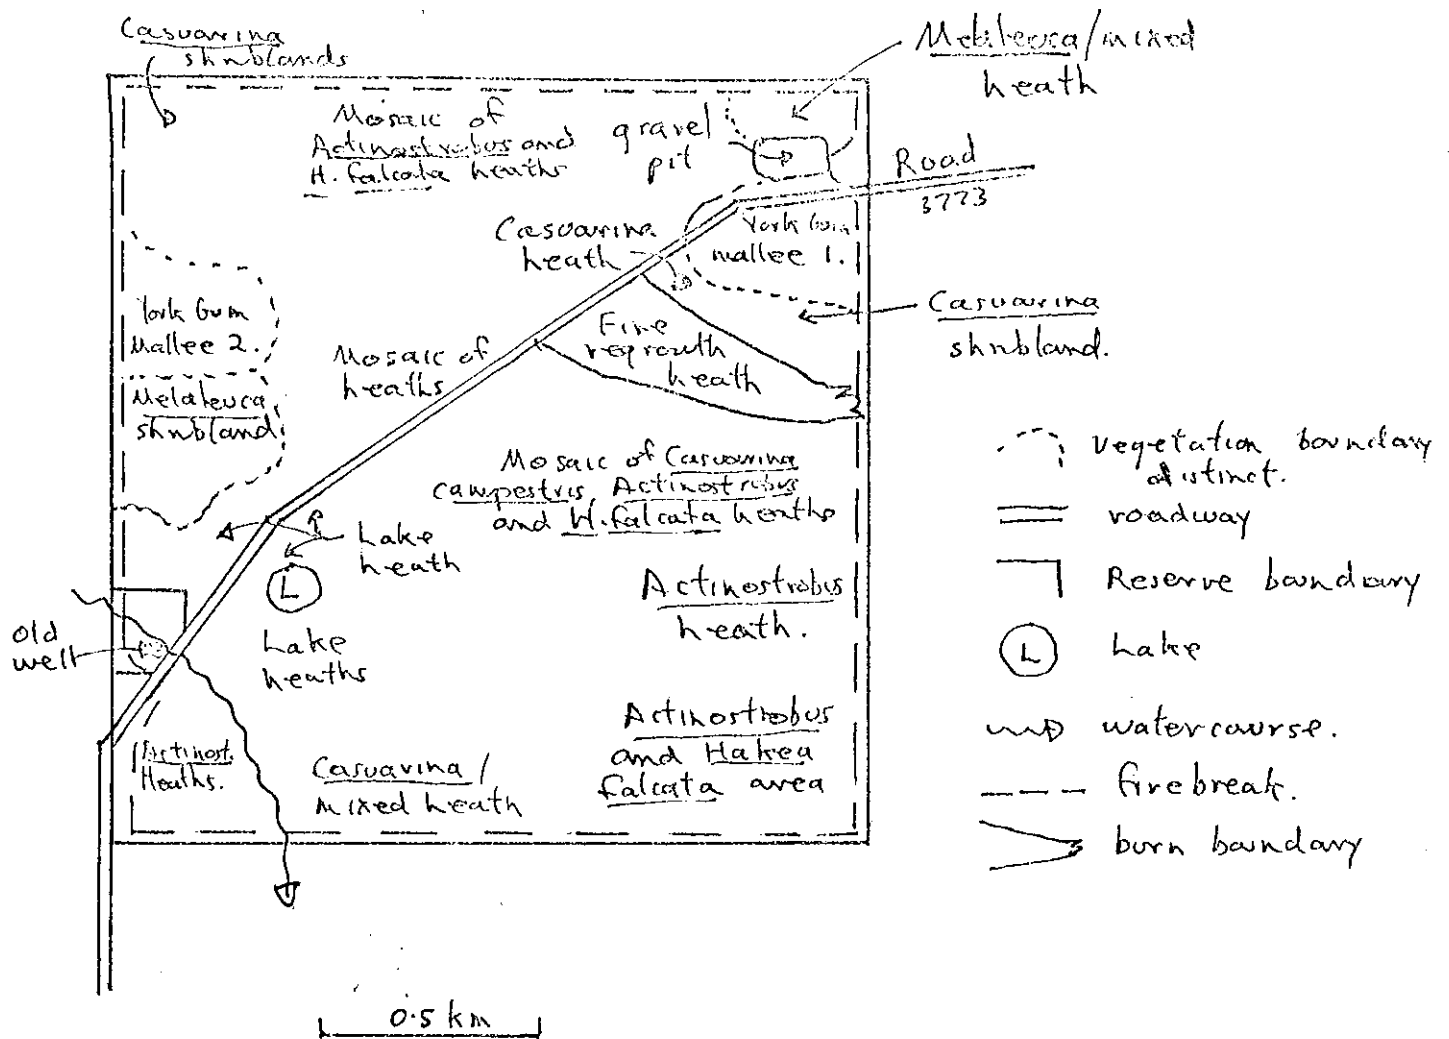 Casuarina
shrublands
Melaleuca/mixed
heath
Mosaic of
Actinostrobus and
H. falcata heaths
gravel
pit
Road
3773
Casuarina
heath
York Gum
mallee 1.
Casuarina
shrubland.
York Gum
Mallee 2.
Melaleuca
shrubland
Mosaic of
heaths
Fire
regrowth
heath
Mosaic of Casuarina
campestris, Actinostrobus
and H. falcata heaths
Lake
heath
L
Lake
heaths
Old
well
Actinostrobus
heath.
Actinost.
Heaths.
Casuarina/
mixed heath
Actinostrobus
and Hakea
falcata area
vegetation boundary
distinct.
roadway
Reserve boundary
L
Lake
watercourse.
firebreak.
burn boundary
0.5 km